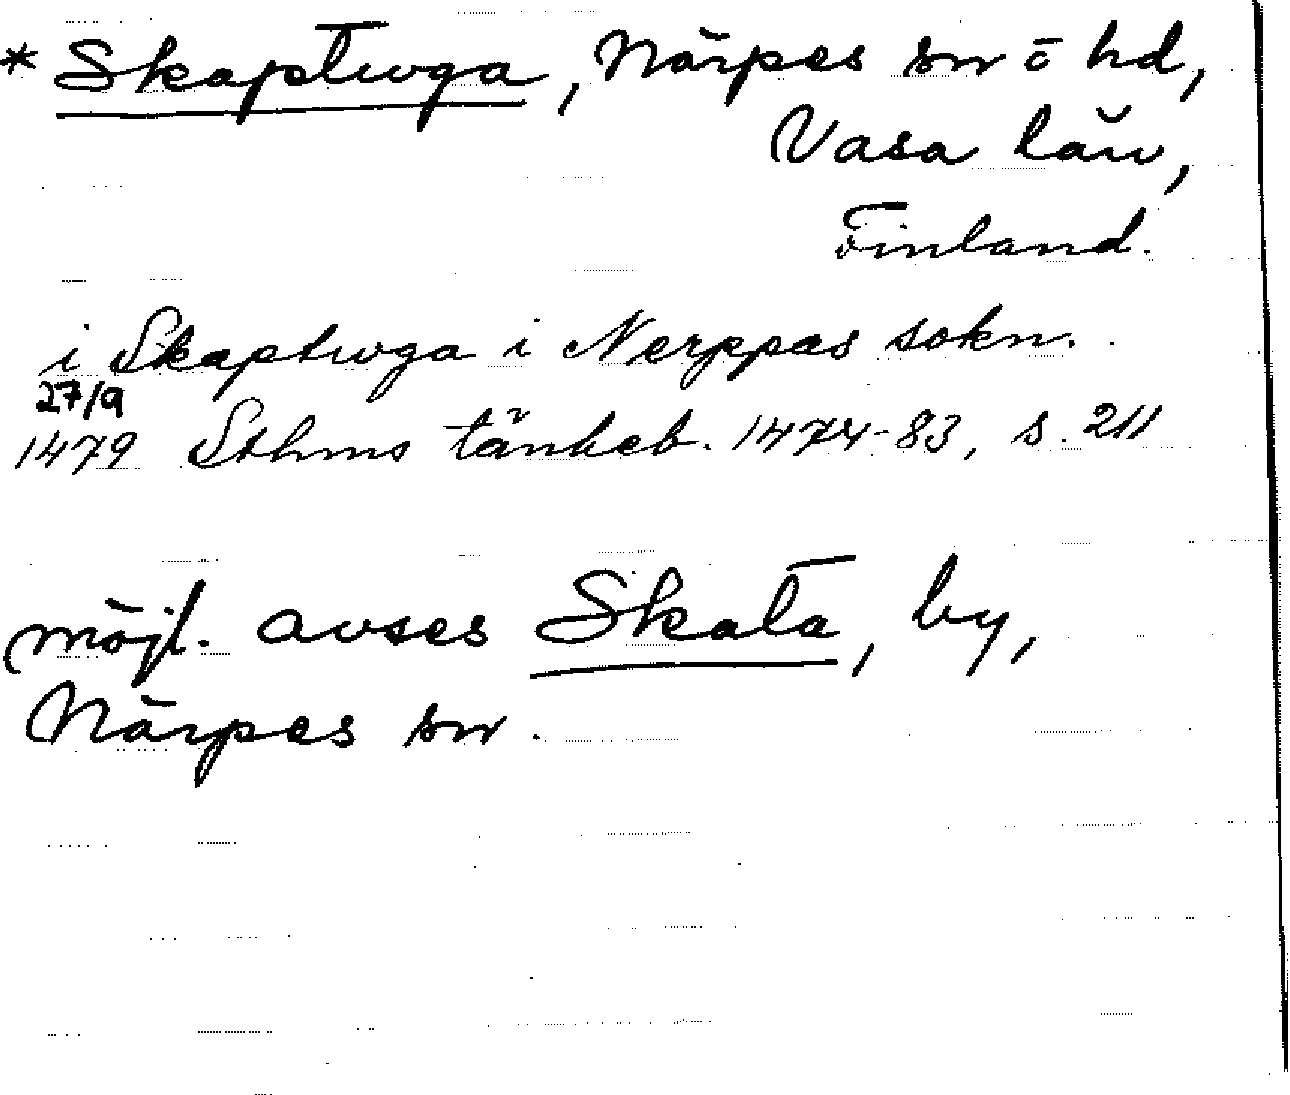 * Skaptwga, Närpes sn o hd,
Vasa län,
Finland.
i Skaptwga i Nerppæs sokn.
27/9
1479 Sthms tänkeb. 1474-83, s. 211
möjl. avses Skata, by,
Närpes sn.